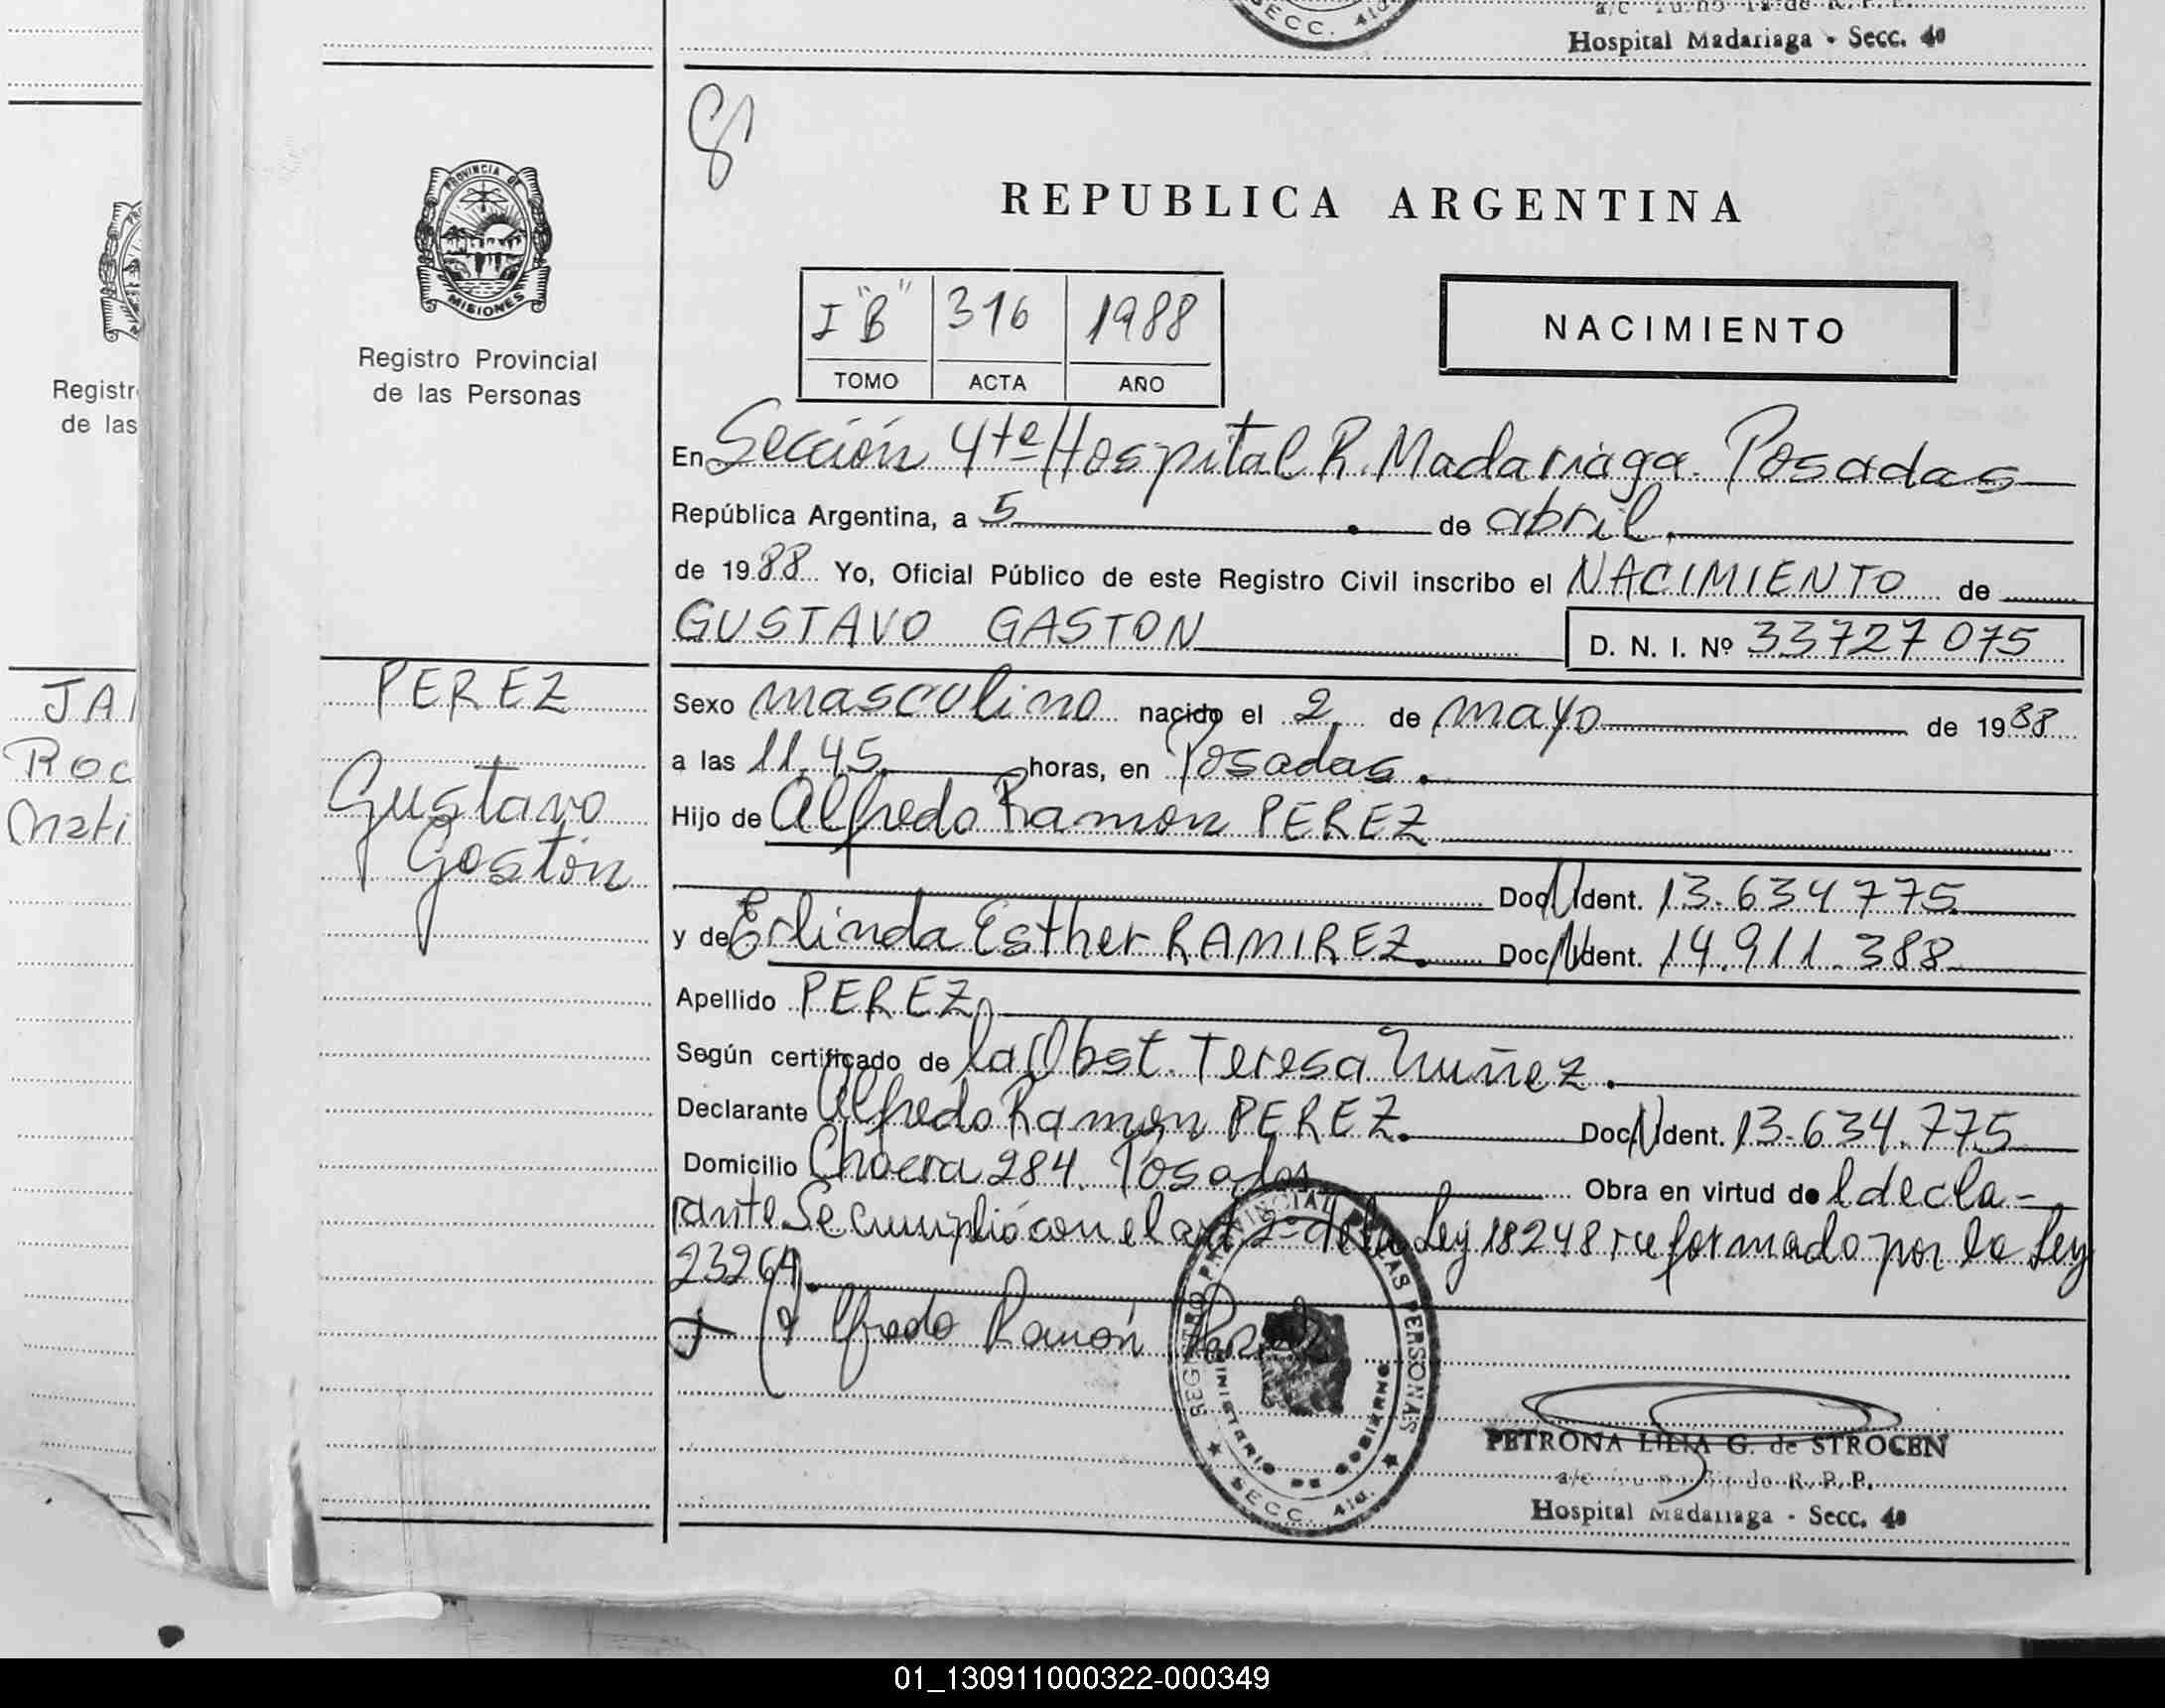 SECC. 4ta
Hospital Madariaga - Secc. 4a
PROVINCIA DE
MISIONES
Registro Provincial
de las Personas
Registr
de las
REPUBLICA ARGENTINA
I "B" 316 1988
TOMO ACTA AÑO
NACIMIENTO
En Sección 4ta Hospital R. Madariaga. Posadas
República Argentina, a 5 de abril.
de 1988 Yo, Oficial Público de este Registro Civil inscribo el NACIMIENTO de
GUSTAVO GASTON
D. N. I. Nº 33727075
JA
Roc
Mati
PEREZ
Gustavo
Gastón
Sexo masculino nacido el 2 de mayo de 1988
a las 11,45. horas, en Posadas.
Hijo de Alfredo Ramon PEREZ
Doc. N Ident. 13.634775
y de Erlinda Esther RAMIREZ. Doc. N Ident. 14.911.388
Apellido PEREZ
Según certificado de la Obst. Teresa Nuñez.
Declarante Alfredo Ramon PEREZ. Doc. N Ident. 13.634.775
Domicilio 284. Posadas Obra en virtud de l decla-
rante. Se cumplió con el art 2º de la Ley 18248 reformado por la Ley
23264.
Alfredo Ramón Perez
REGISTRO PROVINCIAL DE LAS PERSONAS
MINISTERIO DE GOBIERNO
SECC. 4ta.
PETRONA LILIA G. de STROCEN
a/c de R. P. P.
Hospital Madariaga - Secc. 4a
01_130911000322-000349